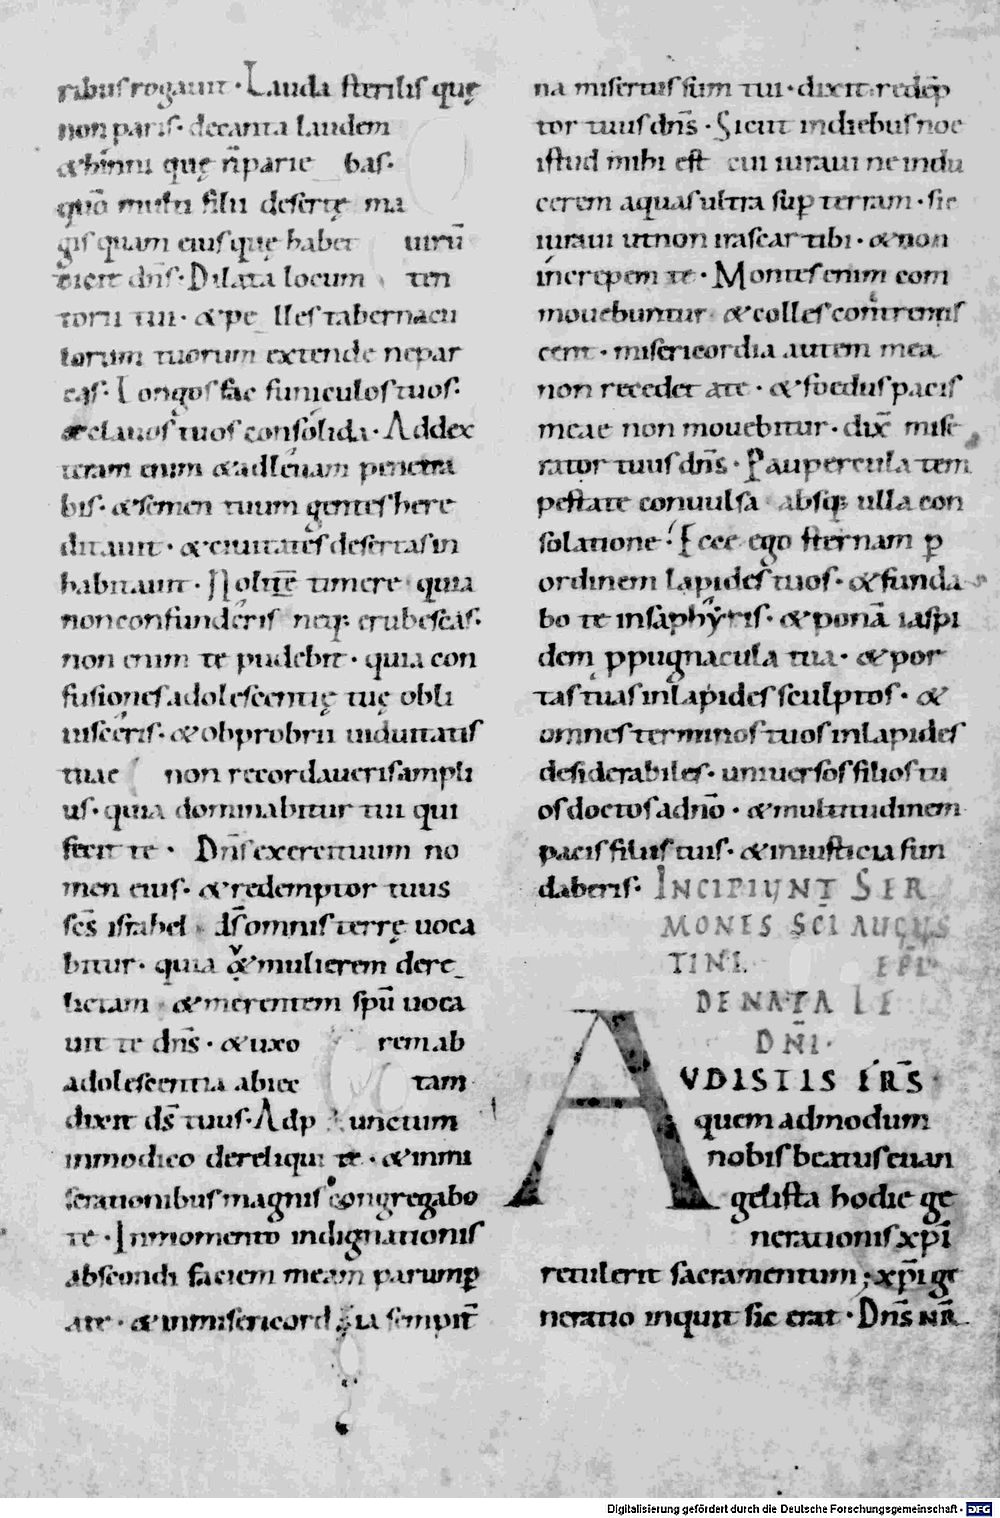 ribus rogauit · Lauda sterilis quę
non paris · decanta laudem
& hinni quę n̄ parie bas ·
quō multi filii desertę ma
gis quam eius quę habet uirū
dicit dn̄s · Dilata locum ten
torii tui · & pelles tabernacu
lorum tuorum extende ne par
cas · Longos fac funiculos tuos ·
& clauos tuos consolida · Ad dex
teram enim & ad leuam penetra
bis · & semen tuum gentes here
ditauit · & ciuitates desertas in
habitauit · Nolite timere quia
non confunderis neq; erubesces ·
non enim te pudebit · quia con
fusionis adolescentię tuę obli
uisceris · & obprobrii uiduitatis
tuae non recordaueris ampli
us · quia dominabitur tui qui
fecit te · Dn̄s exercituum no
men eius · & redemptor tuus
scs̄ israhel ds̄ omnis terrę uoca
bitur · quia & mulierem dere
lictam & merentem spū uoca
uit te dn̄s · & uxo rem ab
adolescentia abiec tam
dixit ds̄ tuus · Ad punctum
in modico dereliqui te · & in mi
serationibus magnis congregabo
te · In momento indignationis
abscondi faciem meam parump
a te · & in misericordia sempit̄
na misertus sum tui · dixit redēp
tor tuus dn̄s · Sicut in diebus noe
istud mihi est cui iuraui ne indu
cerem aquas ultra sup terram · sic
iuraui ut non irascar tibi · & non
increpem te · Montes enim com
mouebuntur & colles contremis
cent · misericordia autem mea
non recedet a te · & foedus pacis
meae non mouebitur · dix̄ mise
rator tuus dn̄s · Paupercula tem
pestate conuulsa absq; ulla con
solatione · Ecce ego sternam p
ordinem lapides tuos · & funda
bo te in saphyris · & ponā iaspi
dem ppugnacula tua · & por
tas tuas in lapides sculptos · &
omnes terminos tuos in lapides
desiderabiles · uniuersos filios tu
os doctos a dn̄o · & multitudinem
pacis filiis tuis · & in iusticia fun
daberis · INCIPIUNT SER
MONES SC̄I AUGUS
TINI EPĪ
DE NATALE
DN̄I ·
AVDISTIS FR̄S
quem admodum
nobis beatus euan
gelista hodie ge
nerationis xp̄i
retulerit sacramentum ; xp̄i ge
neratio inquit sic erat · Dn̄s NR̄
Digitalisierung gefördert durch die Deutsche Forschungsgemeinschaft - DFG